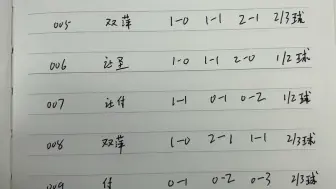 005 双萍 1-0 1-1 2-1 2/3球
006 让 1-0 1-1 2-0 1/2球
007 让 1-1 0-1 0-2 1/2球
008 双萍 1-0 2-1 1-1 2/3球
009 0-1 0-2 0-3 2/3球